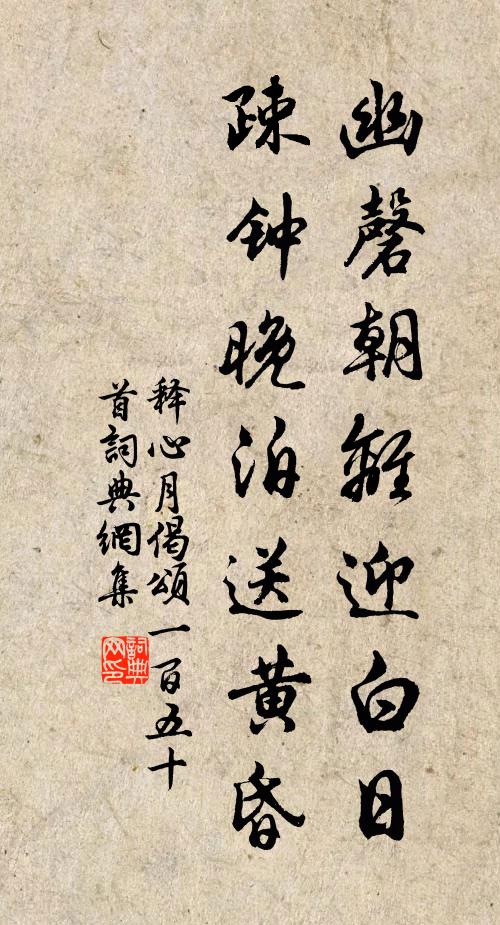 幽磬朝離迎白日
疎钟晚泊送黄昏
释心月偈頌一百五十
首詞典網集
詞典网印